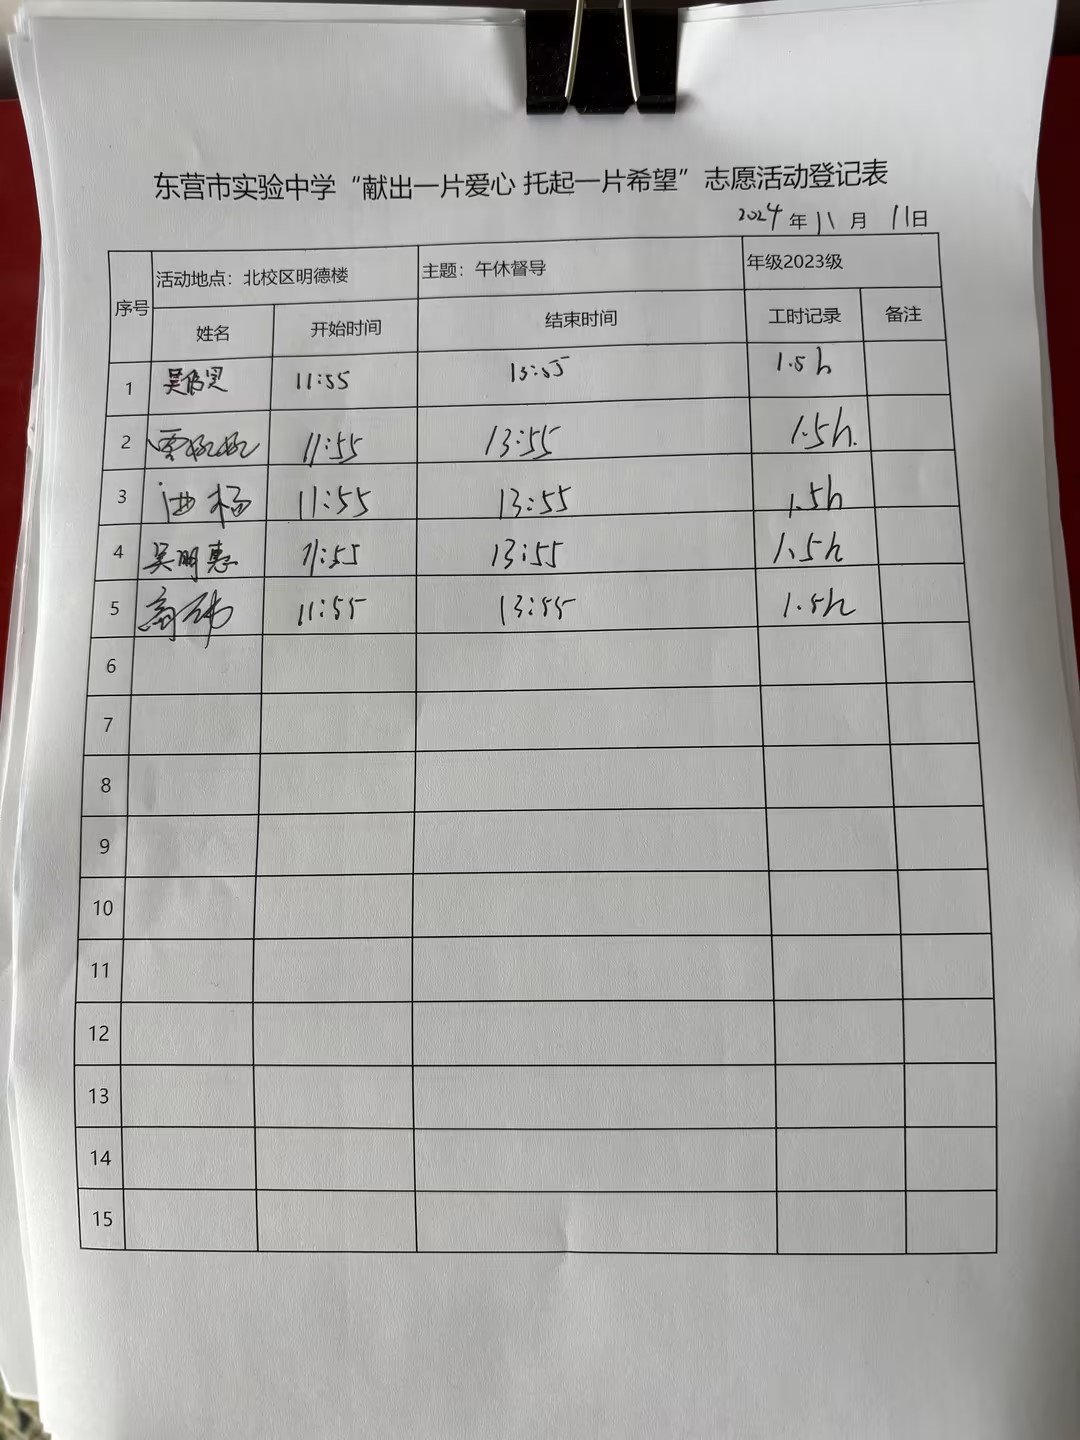 东营市实验中学“献出一片爱心 托起一片希望”志愿活动登记表
2024 年 11 月 11日
序号 活动地点：北校区明德楼 主题：午休督导 年级2023级
姓名 开始时间 结束时间 工时记录 备注
1 11:55 13:55 1.5h
2 11:55 13:55 1.5h.
3 11:55 13:55 1.5h
4 吴明惠 11:55 13:55 1.5h
5 11:55 13:55 1.5h
6
7
8
9
10
11
12
13
14
15